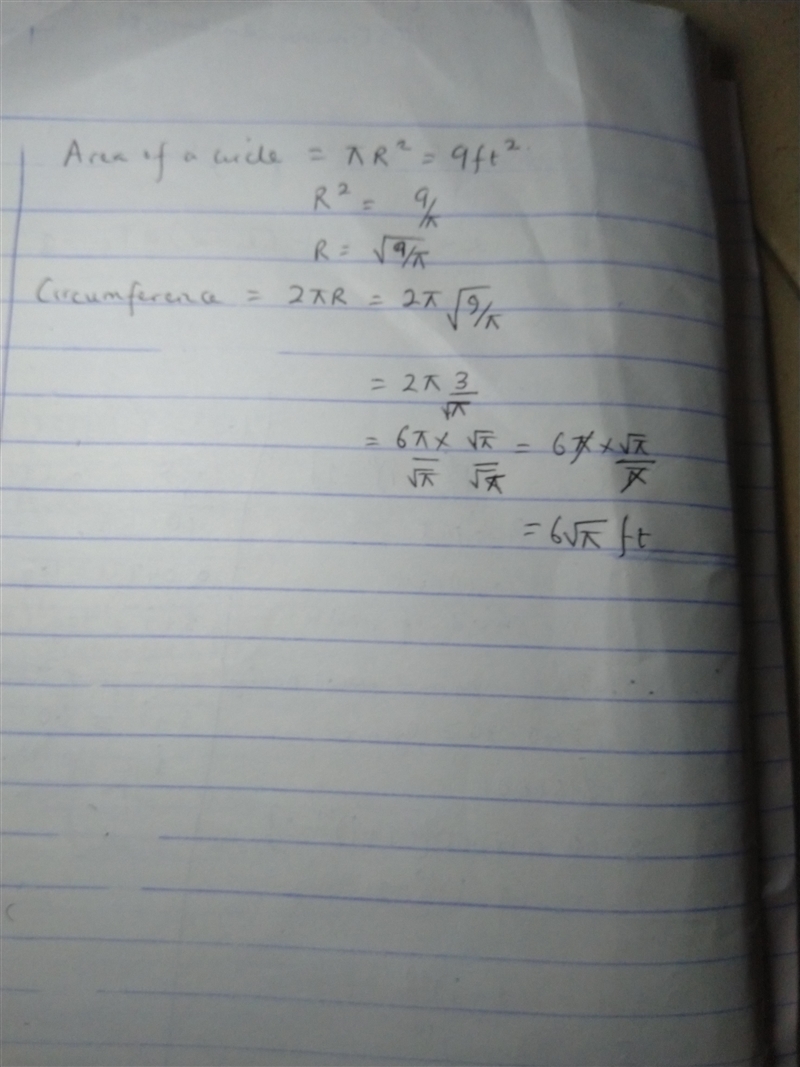 Area of a circle = πR² = 9ft².
R² = 9/π
R = √9/π
Circumference = 2πR = 2π √9/π
= 2π 3/√π
= 6π/√π × √π/√π = 6π × √π/π
= 6√π ft